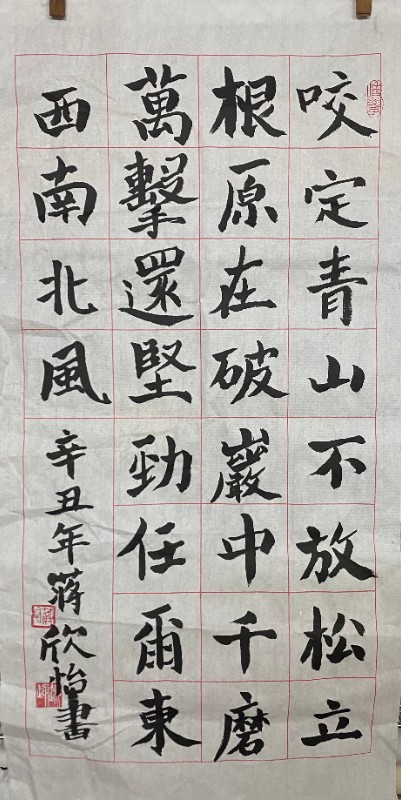 咬定青山不放松立
根原在破巖中千磨
萬擊還堅勁任爾東
西南北風
辛丑年蔣欣怡書